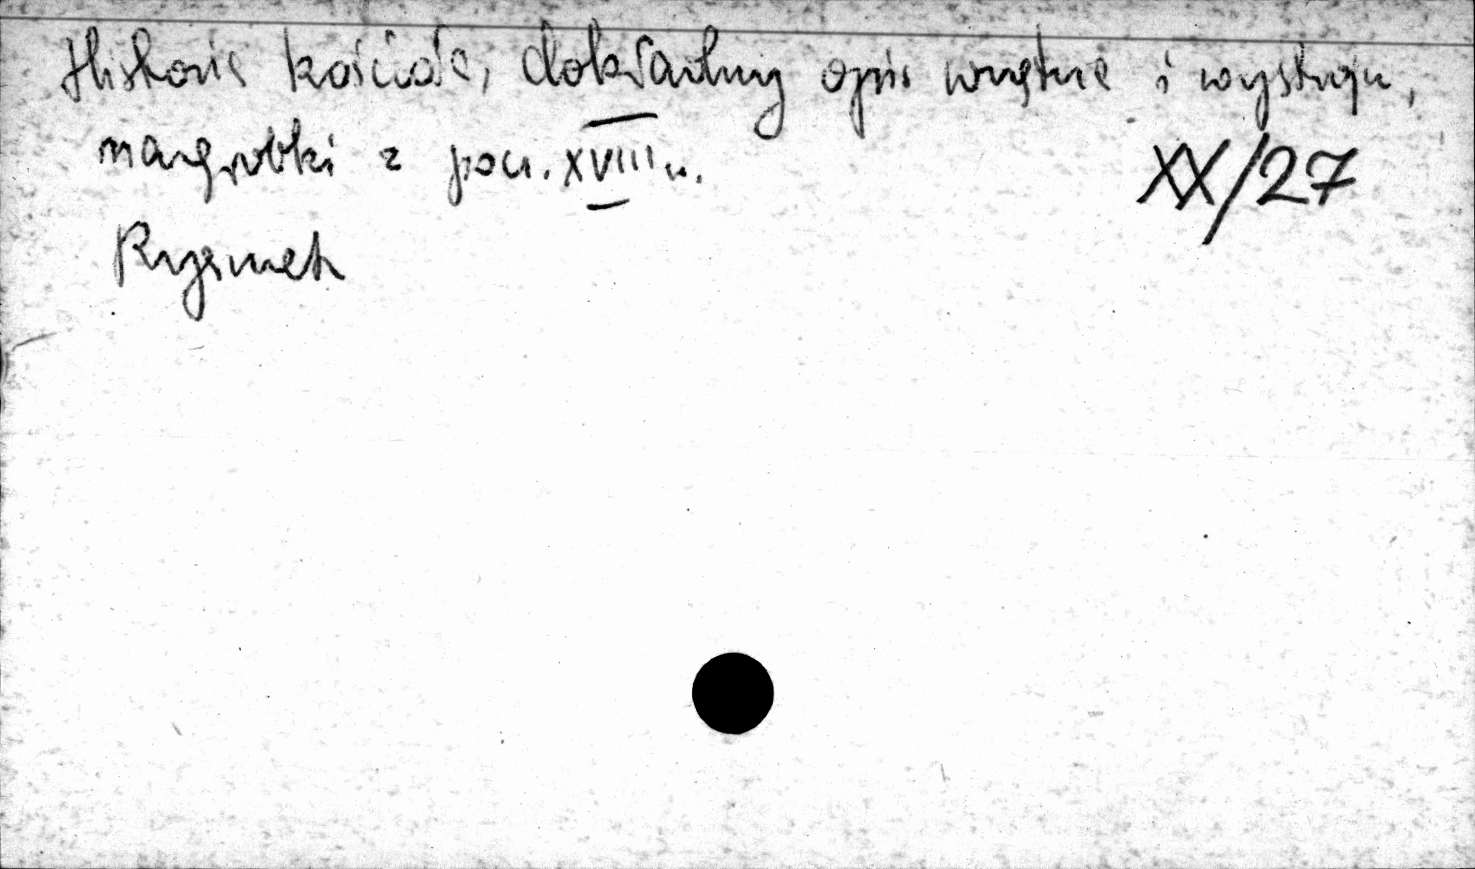 Historia kościoła, dokładny opis wnętrza i wystroju,
nagrobki z pocz. XVIII w.
XX/27
Rysunek